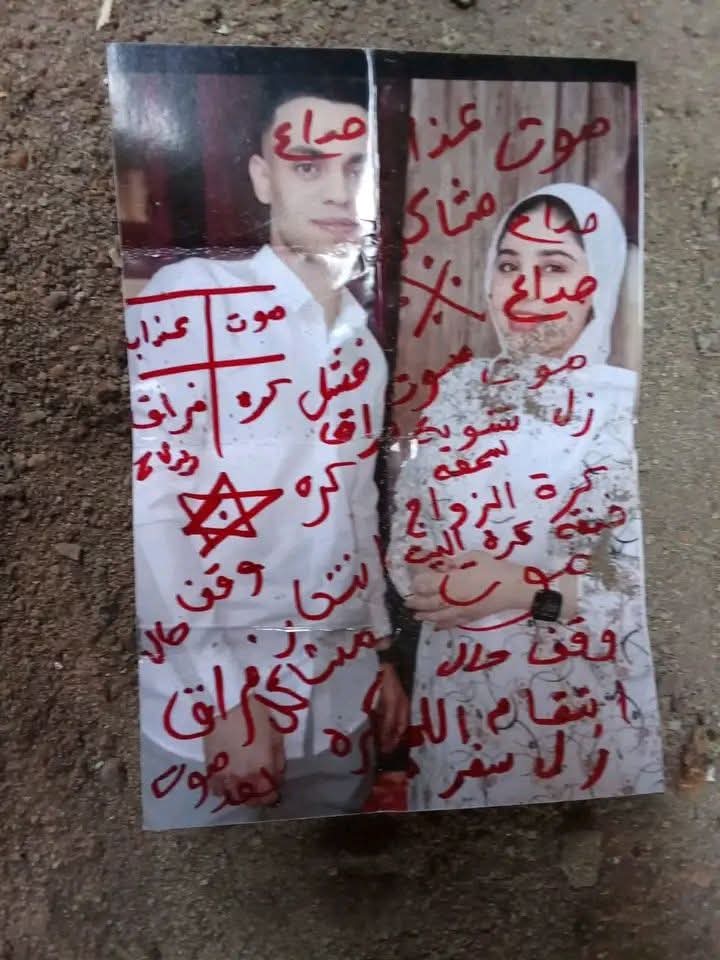 صداع
موت عذا
صداع مشاكل
صداع
موت عذاب
فراق كره
فشل
فراق
كره
موت موت
زل
سمعه
كرة الزواج
موت
انتحار
وقف حال
وقف حال
مشاكل
فراق
انتقام الله
كره
زل سفر
بعد موت